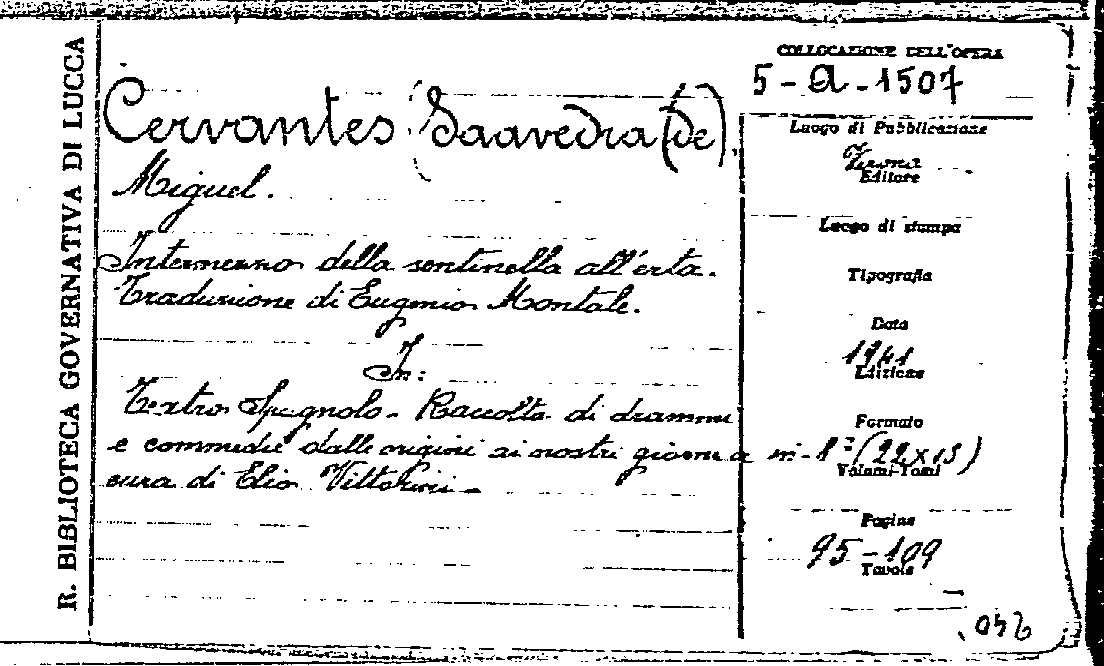 R. BIBLIOTECA GOVERNATIVA DI LUCCA
COLLOCAZIONE DELL'OPERA
5-a-1507
Cervantes (Saavedra (de)
Miguel.
Intermezzo della sentinella all'erta.
Traduzione di Eugenio Montale.
In:
Teatro Spagnolo - Raccolta di drammi
e commedie dalle origini ai nostri giorni a
cura di Elio Vittorini -
Luogo di Pubblicazione
Editore
Luogo di stampa
Tipografia
Data
1941
Edizione
Formato
in-8° (22x15)
Volumi-Tomi
Pagine
95-109
Tavole